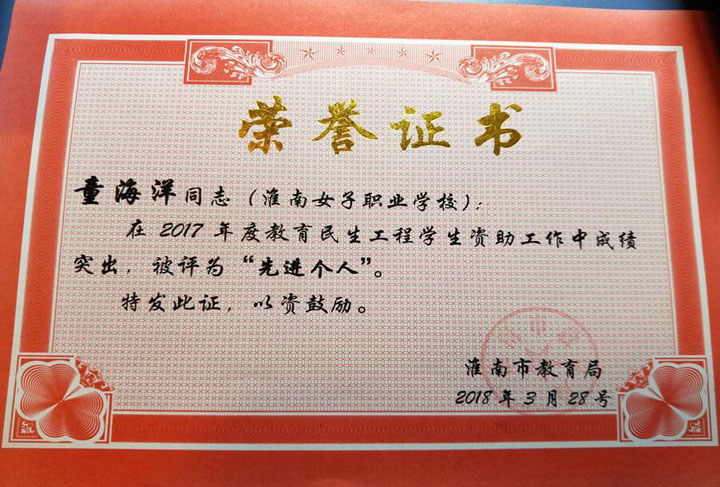 荣誉证书
童海洋同志（淮南女子职业学校）：
在 2017 年度教育民生工程学生资助工作中成绩
突出，被评为“先进个人”。
特发此证，以资鼓励。
淮南市教育局
2018 年 3 月 28 号